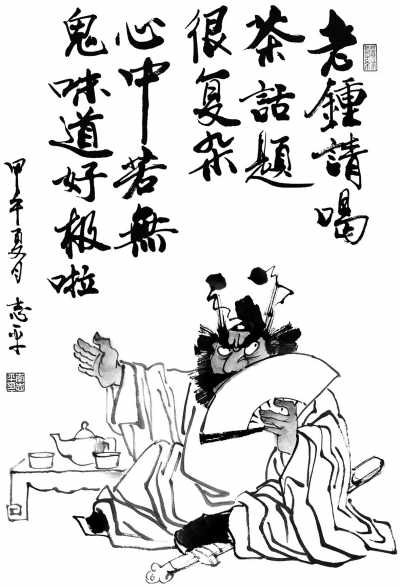 老鍾請喝
茶話題
很复杂
心中若無
鬼味道好极啦
甲午夏月志平